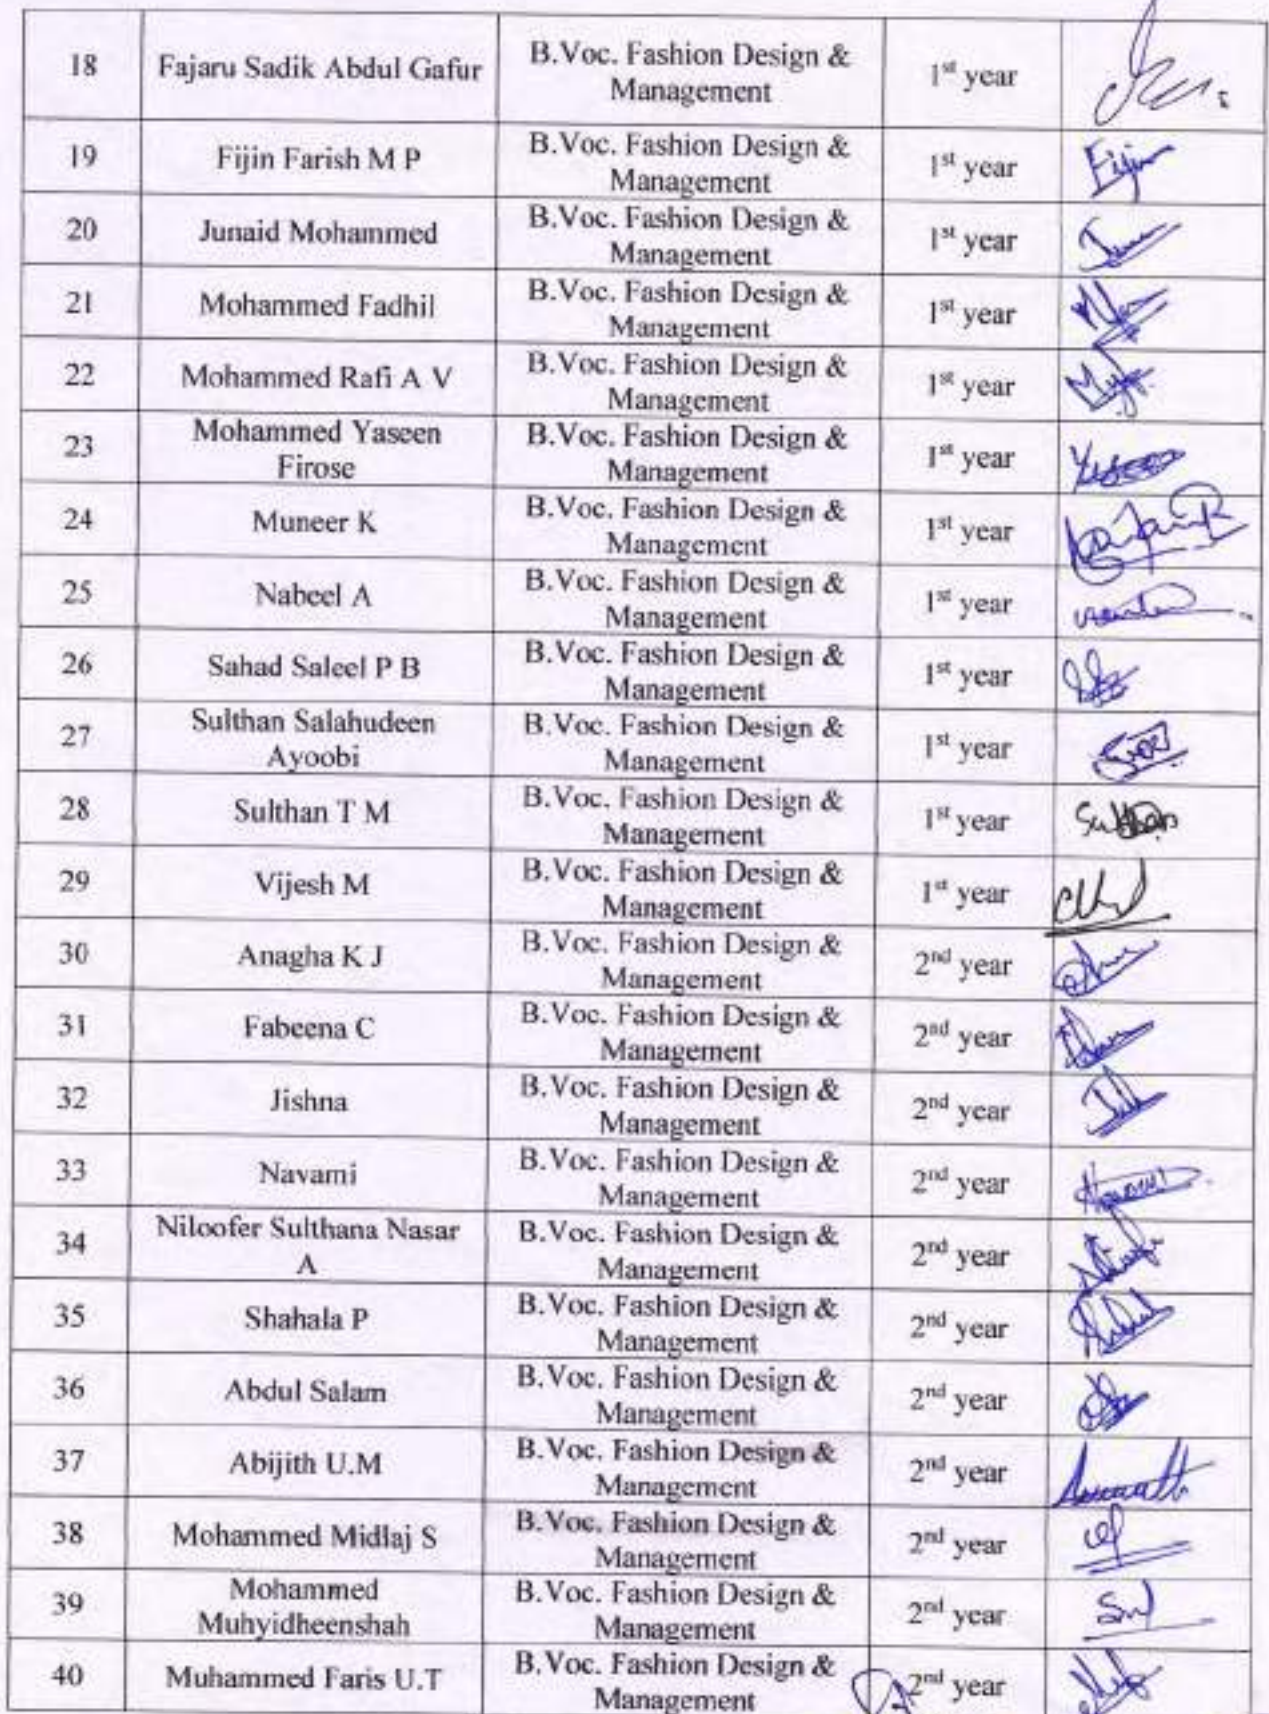 18 Fajaru Sadik Abdul Gafur B.Voc. Fashion Design & Management 1st year
19 Fijin Farish M P B.Voc. Fashion Design & Management 1st year Fijin
20 Junaid Mohammed B.Voc. Fashion Design & Management 1st year
21 Mohammed Fadhil B.Voc. Fashion Design & Management 1st year
22 Mohammed Rafi A V B.Voc. Fashion Design & Management 1st year
23 Mohammed Yaseen Firose B.Voc. Fashion Design & Management 1st year
24 Muneer K B.Voc. Fashion Design & Management 1st year
25 Nabeel A B.Voc. Fashion Design & Management 1st year
26 Sahad Saleel P B B.Voc. Fashion Design & Management 1st year
27 Sulthan Salahudeen Ayoobi B.Voc. Fashion Design & Management 1st year
28 Sulthan T M B.Voc. Fashion Design & Management 1st year Sulthan
29 Vijesh M B.Voc. Fashion Design & Management 1st year
30 Anagha K J B.Voc. Fashion Design & Management 2nd year
31 Fabeena C B.Voc. Fashion Design & Management 2nd year
32 Jishna B.Voc. Fashion Design & Management 2nd year
33 Navami B.Voc. Fashion Design & Management 2nd year
34 Niloofer Sulthana Nasar A B.Voc. Fashion Design & Management 2nd year
35 Shahala P B.Voc. Fashion Design & Management 2nd year
36 Abdul Salam B.Voc. Fashion Design & Management 2nd year
37 Abijith U.M B.Voc. Fashion Design & Management 2nd year
38 Mohammed Midlaj S B.Voc. Fashion Design & Management 2nd year
39 Mohammed Muhyidheenshah B.Voc. Fashion Design & Management 2nd year
40 Muhammed Faris U.T B.Voc. Fashion Design & Management 2nd year